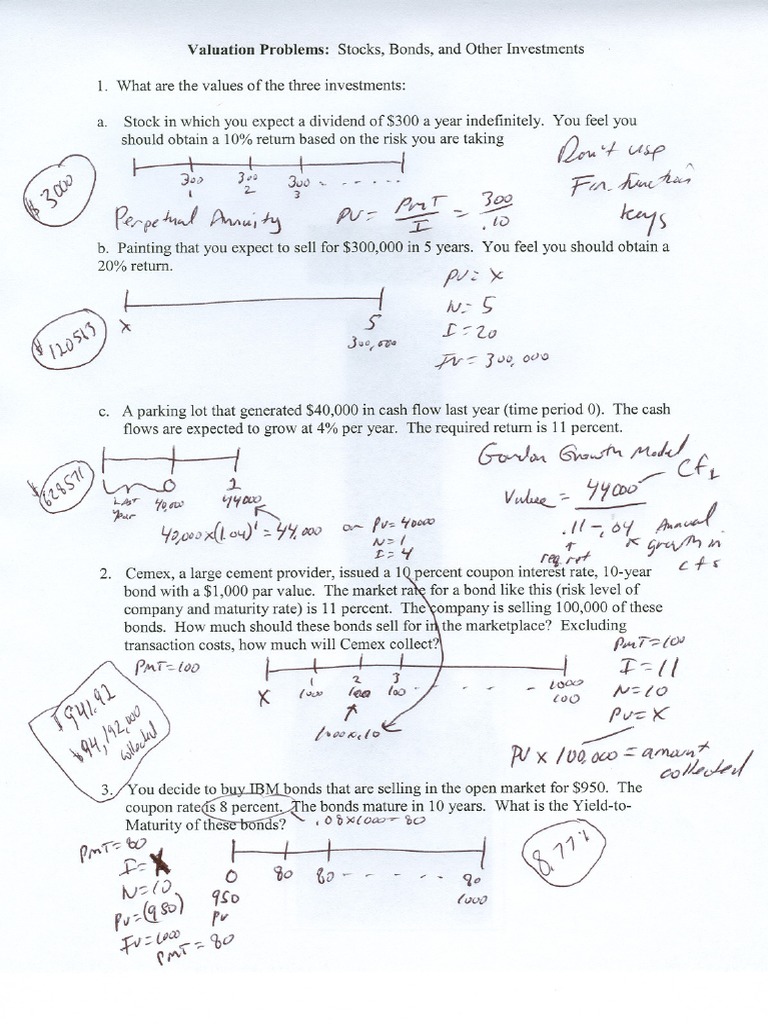 Valuation Problems: Stocks, Bonds, and Other Investments
1. What are the values of the three investments:
a. Stock in which you expect a dividend of $300 a year indefinitely. You feel you
should obtain a 10% return based on the risk you are taking
Don't use
Fin. function
keys
$3000
300 300 300 - - - - -
1 2 3
Perpetual Annuity PV = PMT/I = 300/.10
b. Painting that you expect to sell for $300,000 in 5 years. You feel you should obtain a
20% return.
PV = X
N = 5
I = 20
FV = 300,000
X 5
300,000
$120563
c. A parking lot that generated $40,000 in cash flow last year (time period 0). The cash
flows are expected to grow at 4% per year. The required return is 11 percent.
$628571
Last year
0 1
40,000 44000
40,000 x (1.04)¹ = 44,000 or PV = 40000
N = 1
I = 4
Gordon Growth Model
Value = 44000 / .11 - .04
CF1
req ret
Annual
growth in
cfs
2. Cemex, a large cement provider, issued a 10 percent coupon interest rate, 10-year
bond with a $1,000 par value. The market rate for a bond like this (risk level of
company and maturity rate) is 11 percent. The company is selling 100,000 of these
bonds. How much should these bonds sell for in the marketplace? Excluding
transaction costs, how much will Cemex collect?
PMT = 100
PMT = 100
I = 11
N = 10
PV = X
1 2 3
X 1000 100 100 - - - - 1000
100
1000 x .10
$941.92
$94,192,000
collected
PV x 100,000 = amount
collected
3. You decide to buy IBM bonds that are selling in the open market for $950. The
coupon rate is 8 percent. The bonds mature in 10 years. What is the Yield-to-
Maturity of these bonds? .08 x 1000 = 80
PMT = 80
I = X
N = 10
PV = (950)
FV = 1000
PMT = 80
0 80 80 - - - - - - 80
950 1000
PV
8.77%